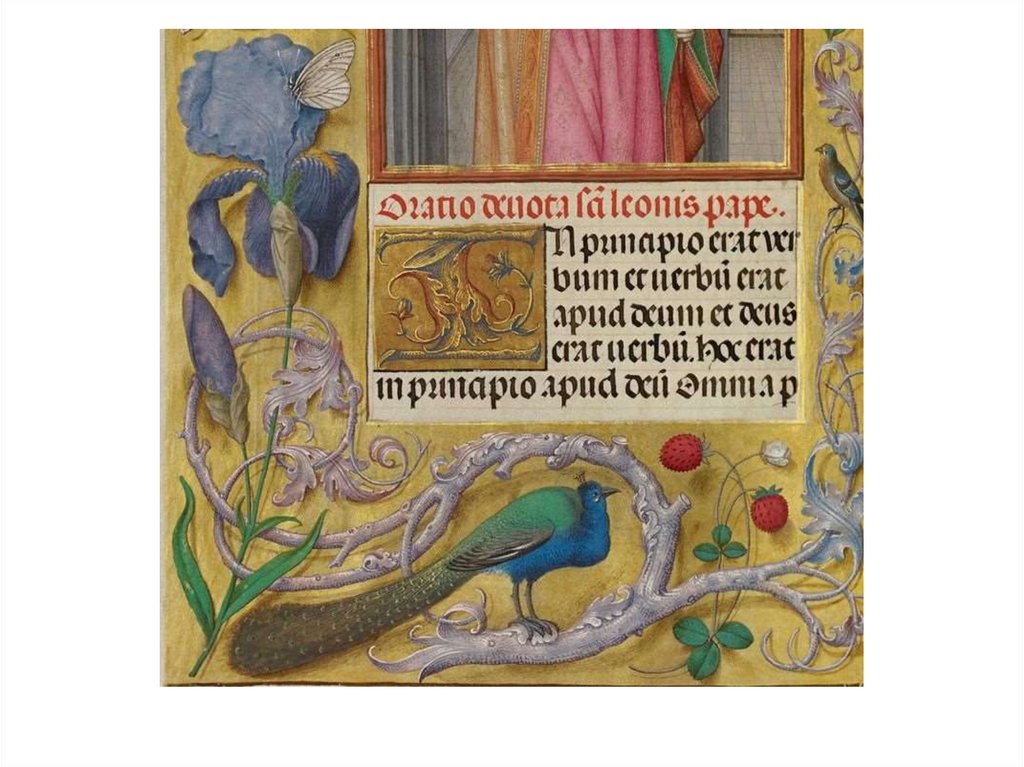 Oratio deuota sc̄i leonis pape.
IN principio erat ver
bum et uerbū erat
apud deum et deus
erat uerbū. hoc erat
in principio apud deū Omnia p